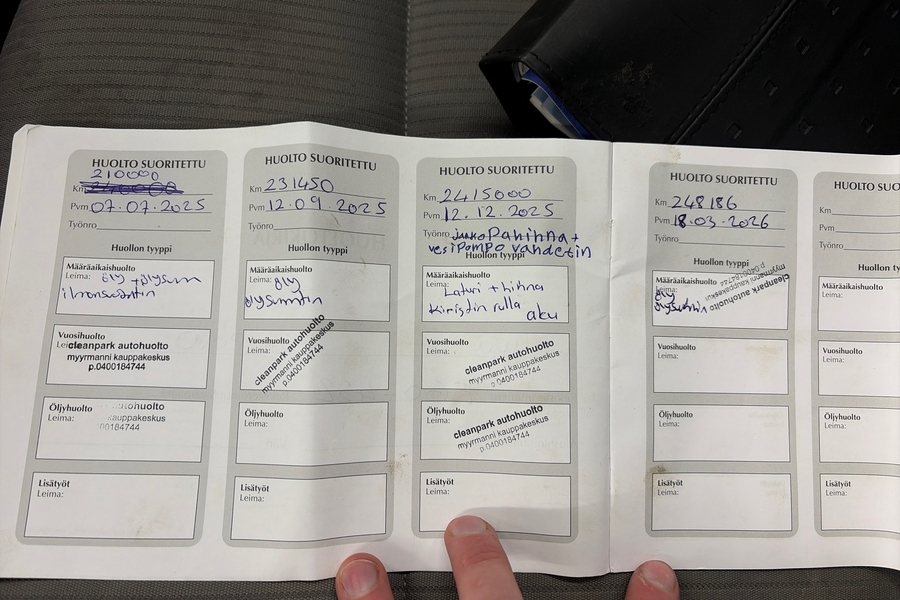 HUOLTO SUORITETTU
210000
Km
Pvm 07.07.2025
Työnro
Huollon tyyppi
Määräaikaishuolto
Leima: öly +
Vuosihuolto
cleanpark autohuolto
myyrmanni kauppakeskus
p.0400184744
Öljyhuolto
Leima:
autohuolto
kauppakeskus
00184744
Lisätyöt
Leima:
HUOLTO SUORITETTU
Km 231450
Pvm 12.09.2025
Työnro
Huollon tyyppi
Määräaikaishuolto
Leima: öly
Vuosihuolto
Leima:
cleanpark autohuolto
myyrmanni kauppakeskus
p.0400184744
Öljyhuolto
Leima:
Lisätyöt
Leima:
HUOLTO SUORITETTU
Km 2415000
Pvm 12.12.2025
Työnro jakopähihna +
vesipompo vahdetin
Huollon tyyppi
Määräaikaishuolto
Leima: Laturi + hihna
kiristin rulla
aku
Vuosihuolto
Leima:
cleanpark autohuolto
myyrmanni kauppakeskus
p.0400184744
Öljyhuolto
Leima:
cleanpark autohuolto
myyrmanni kauppakeskus
p.0400184744
Lisätyöt
Leima:
HUOLTO SUORITETTU
Km 248186
Pvm 18.03.2026
Työnro
Huollon tyyppi
Määräaikaishuolto
Leima:
öly
cleanpark autohuolto
myyrmanni kauppakeskus
p.0400184744
Vuosihuolto
Leima:
Öljyhuolto
Leima:
Lisätyöt
Leima:
HUOLTO SUO
Km
Pvm
Työnro
Huollon ty
Määräaikaishuolto
Leima:
Vuosihuolto
Leima:
Öljyhuolto
Leima:
Lisätyöt
Leima: